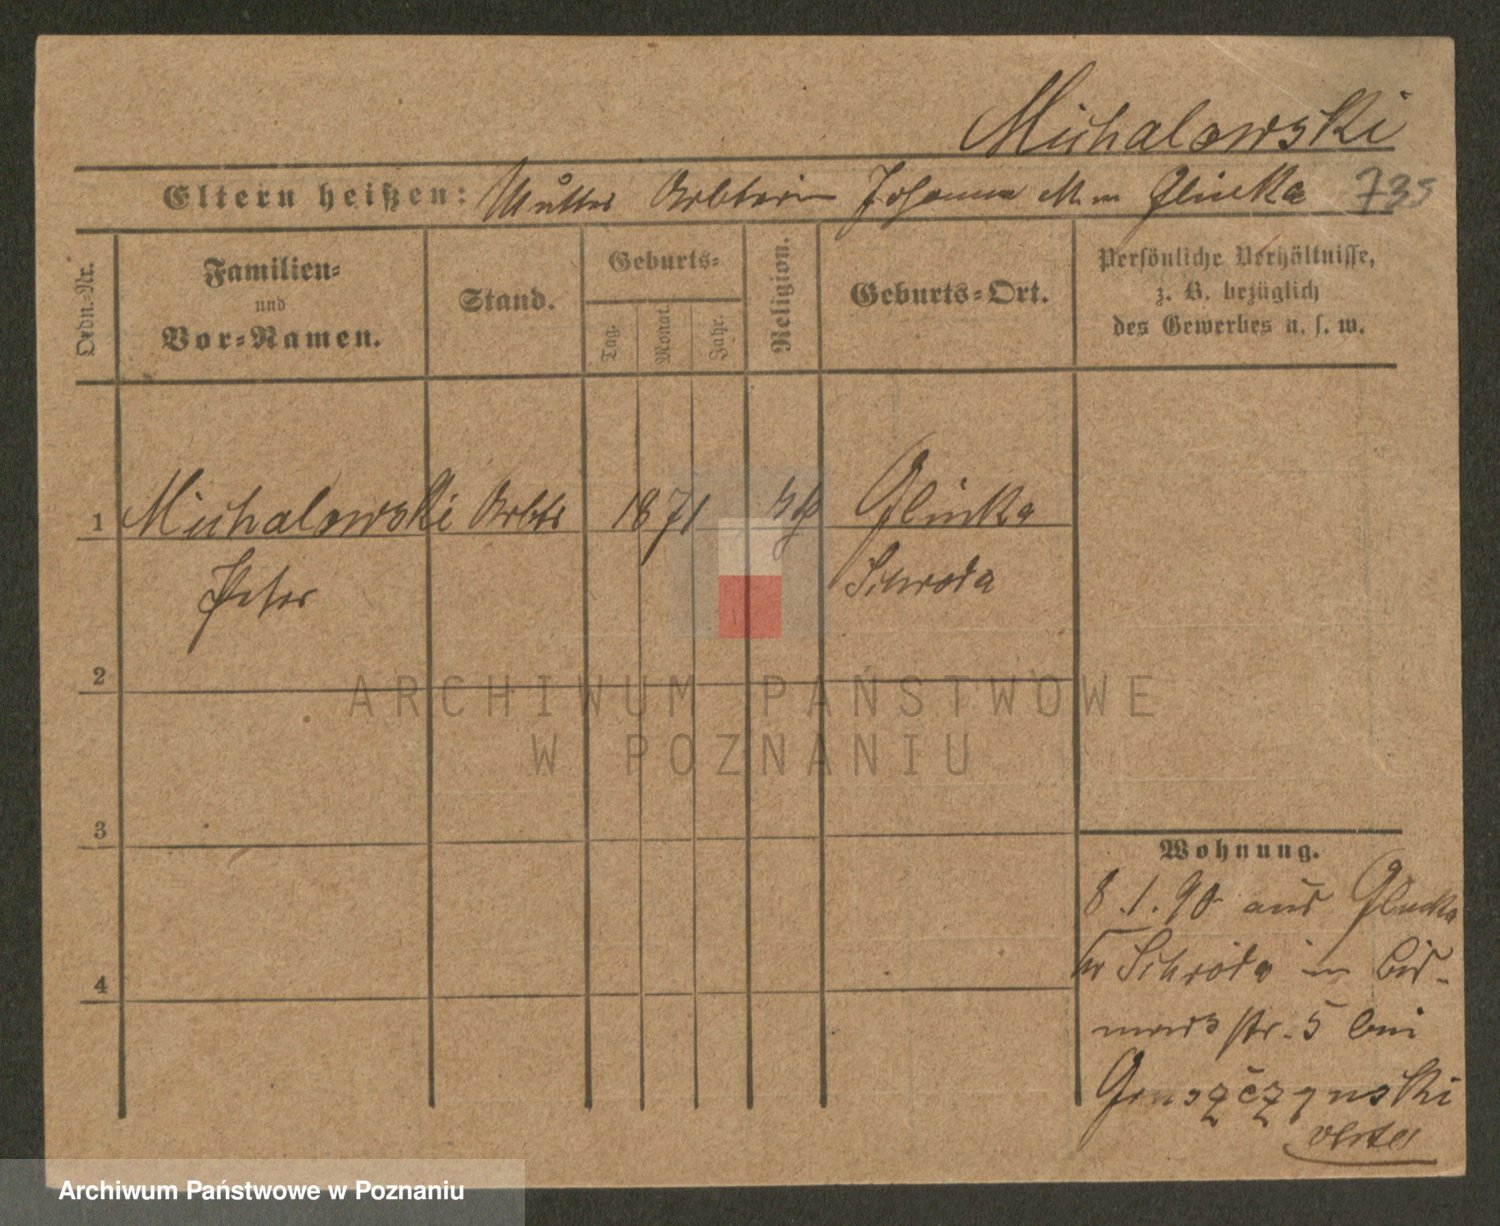 Michalowski
Eltern heißen: Mutter Arbterin Johanna M in Glinka 735
Ordn.-Nr.
Familien-
und
Vor-Namen.
Stand.
Geburts-
Tag.
Monat.
Jahr.
Religion.
Geburts-Ort.
Persönliche Verhältnisse,
z. B. bezüglich
des Gewerbes u. s. w.
1 Michalowski Arbtr 1871 Glinka
Peter Schroda
2
3
4
Wohnung.
8.1.90 aus Glinka
Kr Schroda in Bis-
marckstr. 5 bei
Gruszczynski
verte
ARCHIWUM PAŃSTWOWE
W POZNANIU
Archiwum Państwowe w Poznaniu